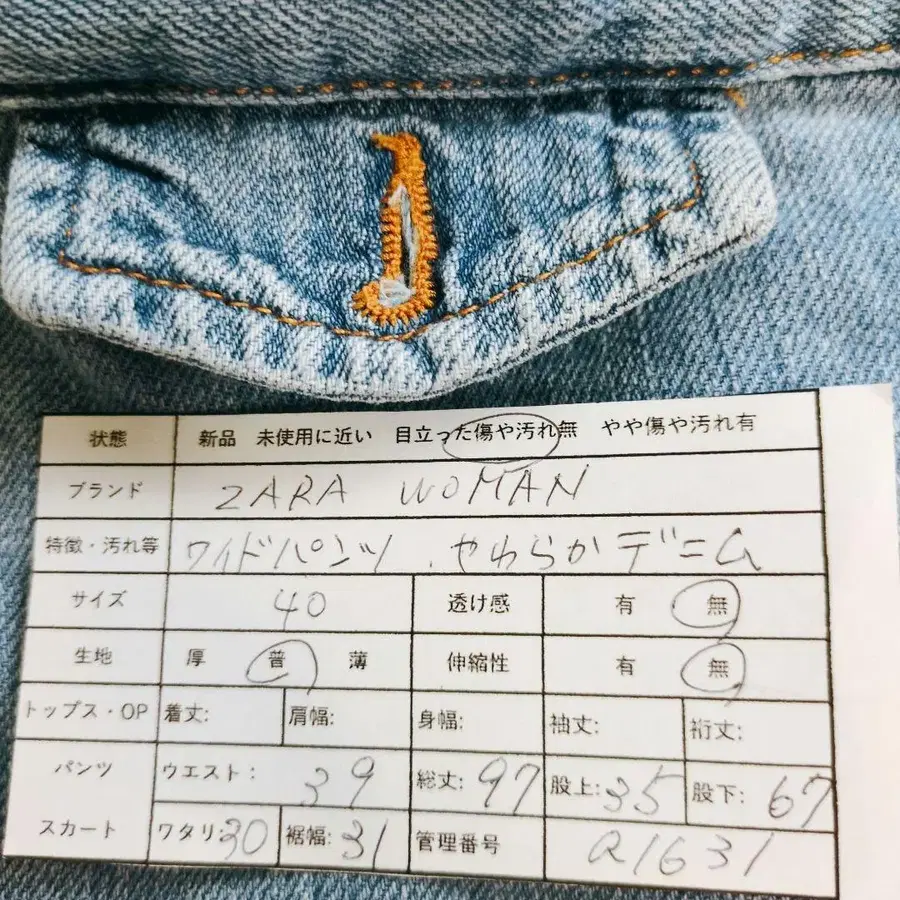 状態 新品 未使用に近い 目立った傷や汚れ無 やや傷や汚れ有
ブランド ZARA WOMAN
特徴・汚れ等 ワイドパンツ.やわらかデニム
サイズ 40 透け感 有 無
生地 厚 普 薄 伸縮性 有 無
トップス・OP 着丈: 肩幅: 身幅: 袖丈: 裄丈:
パンツ ウエスト: 39 総丈: 97 股上: 35 股下: 67
スカート ワタリ: 30 裾幅: 31 管理番号 a1631